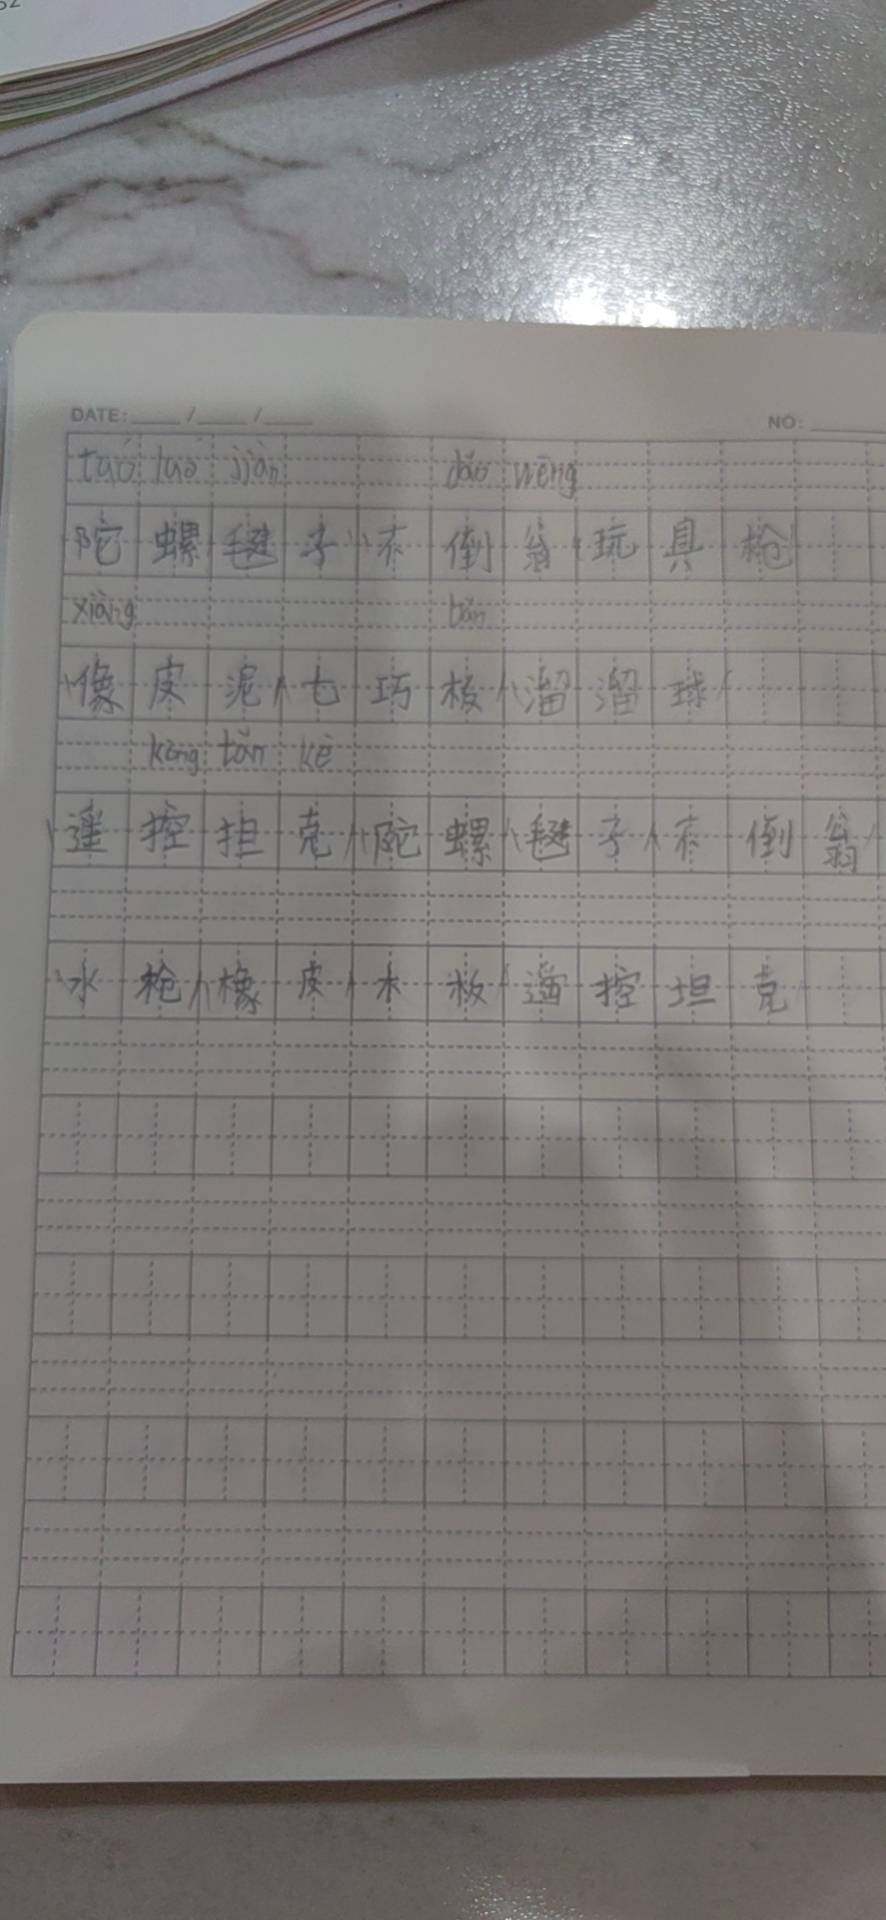 DATE: / /
NO:
tuó luó jiàn dǎo wēng
陀螺毽子不倒翁玩具枪
xiàng bǎn
像皮泥七巧板溜溜球
kòng tǎn kè
遥控担克陀螺毽子不倒翁
水枪橡皮木板遥控坦克